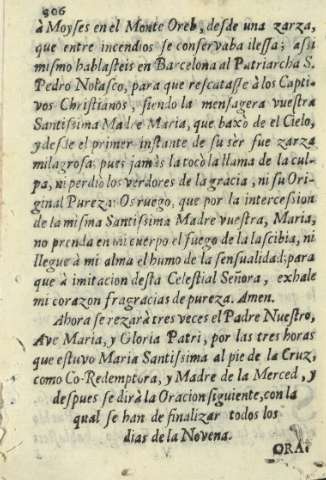 906
à Moyses en el Monte Oreb, desde una zarza,
que entre incendios se conservaba ilessa; asii
mismo hablasteis en Barcelona al Patriarcha S.
Pedro Nolasco, para que rescatasse à los Capti-
vos Christianos, siendo la mensagera vuestra
Santissima Madre Maria, que baxò de el Cielo,
y desde el primer instante de su sèr fue zarza
milagrosa; pues jamàs la tocò la llama de la cul-
pa, ni perdiò los verdores de la gracia, ni su Ori-
ginal Pureza: Os ruego, que por la intercession
de la misma Santissima Madre vuestra, Maria,
no prenda en mi cuerpo el fuego de la lascibia, ni
llegue à mi alma el humo de la sensualidad; para
que à imitacion desta Celestial Señora, exhale
mi corazon fragracias de pureza. Amen.
Ahora se rezarà tres veces el Padre Nuestro,
Ave Maria, y Gloria Patri, por las tres horas
que estuvo Maria Santissima al pie de la Cruz,
como Co-Redemptora, y Madre de la Merced, y
despues se dirà la Oracion siguiente, con la
qual se han de finalizar todos los
dias de la Novena.
ORA-